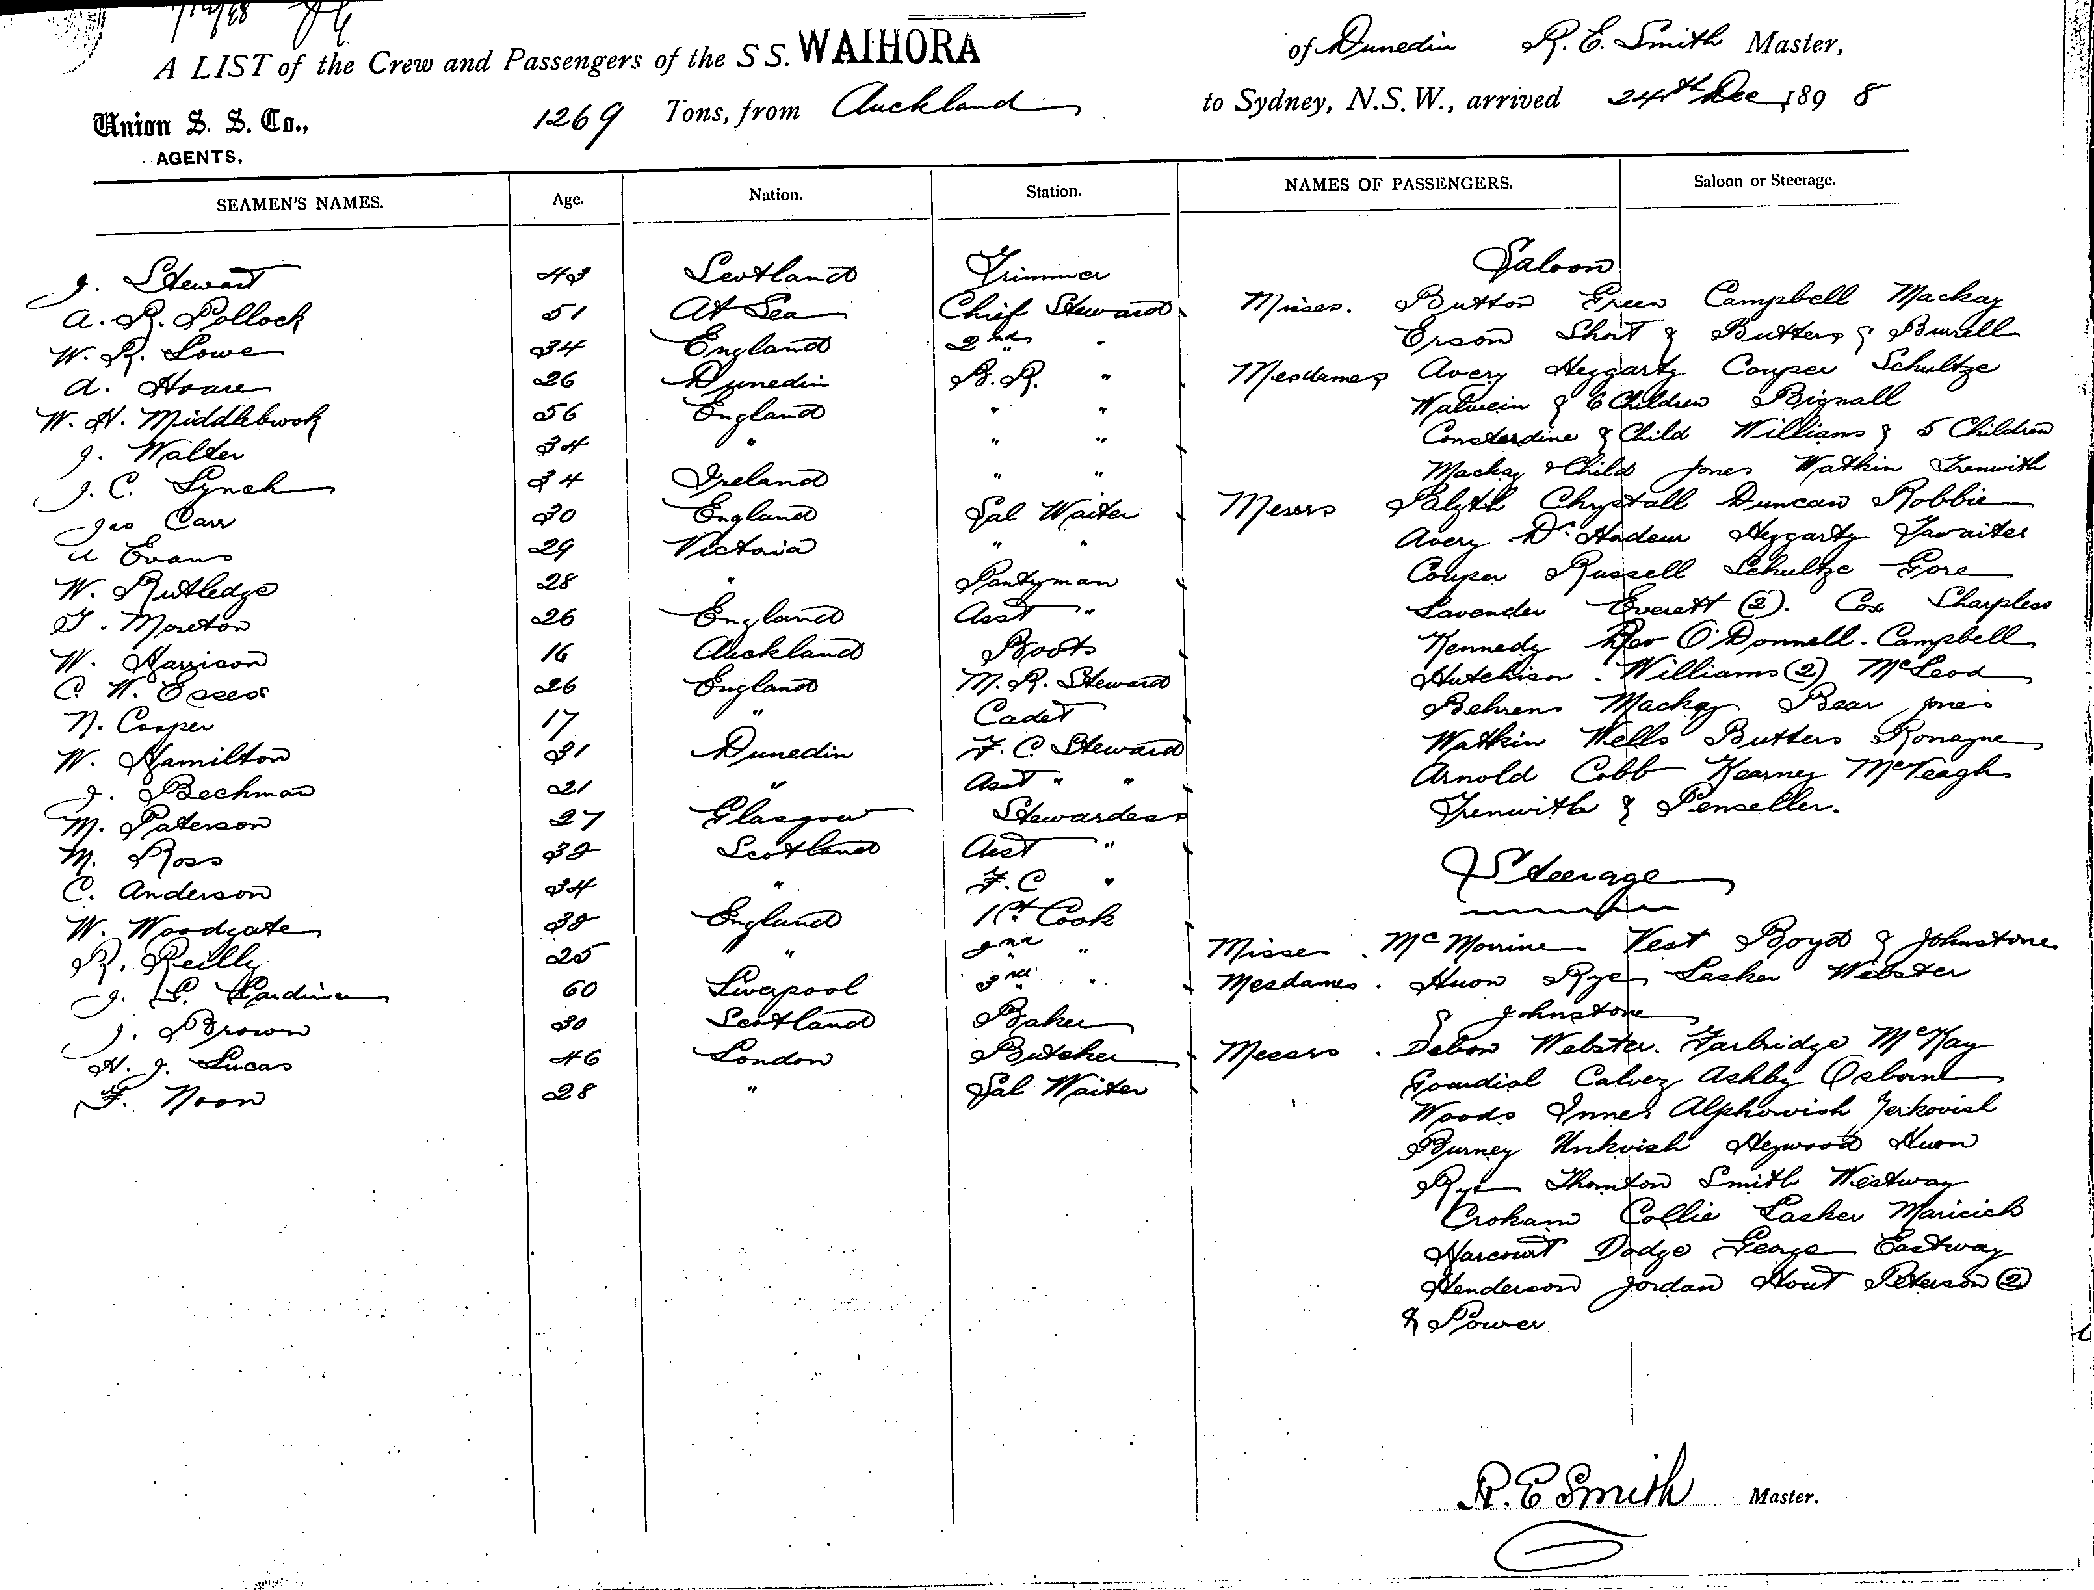 A LIST of the Crew and Passengers of the S S. WAIHORA of Dunedin R. E. Smith Master,
Union S. S. Co., AGENTS. 1269 Tons, from Auckland to Sydney, N.S.W., arrived 24th Dec 1898
SEAMEN'S NAMES. Age. Nation. Station. NAMES OF PASSENGERS. Saloon or Steerage.
J. Stewart 43 Scotland Trimmer
A. R. Pollock 51 At Sea Chief Steward
W. R. Lowe 34 England 2nd "
A. Hoare 26 Dunedin B. R. "
W. H. Middlebrook 56 England " "
J. Walter 34 " " "
J. C. Lynch 34 Ireland " "
Jas Carr 30 England Sal Waiter
A Evans 29 Victoria " "
W. Rutledge 28 " Pantryman
T. Moreton 26 England Asst "
W. Harrison 16 Auckland Boots
C. W. 26 England M. R. Steward
N. Cooper 17 " Cadet
W. Hamilton 31 Dunedin F. C. Steward
J. Beckman 21 " Asst " "
M. Paterson 27 Glasgow Stewardess
M. Ross 38 Scotland Asst "
C. Anderson 34 " F. C "
W. Woodgate 38 England 1st Cook
R. Reilly 25 " 2nd "
J. 60 Liverpool 3rd "
J. Brown 30 Scotland Baker
H. J. Lucas 46 London Butcher
F. Noon 28 " Sal Waiter
Saloon
Misses. Button Green Campbell Mackay
Erson Short & Butters & Burell
Mesdames Avery Heggarty Couper Schultze
Walwein & 6 Children Bignall
Consterdine & Child Williams & 5 Children
Mackay & Child Jones Watkin Trenwith
Messrs Chrystall Duncan Robbie
Avery Dr. Heggarty
Couper Russell Schultze Gore
Lavender Everett (2). Cox Sharpless
Kennedy Rev O'Donnell. Campbell
Hutchison. Williams (2) McLeod
Behrens Mackay Bear Jones
Watkin Wells Butters Ronayne
Arnold Cobb Kearney McVeagh
Trenwith & Penseller.
Steerage
Misses. McMorrine Vest Boyd & Johnstone
Mesdames. Huon Rye Lasker Webster
& Johnstone
Messrs. Debon Webster. Farbridge McKay
Gourdial Calvey Ashby Osborne
Woods Innes Alphowish Jerkovish
Burney Unkvish Heywood Huon
Rye Thornton Smith Westway
Croham Collie Lasker Maricich
Harcourt Dodge George Eastway
Henderson Jordan Hout Peterson (2)
& Power
R. E Smith Master.